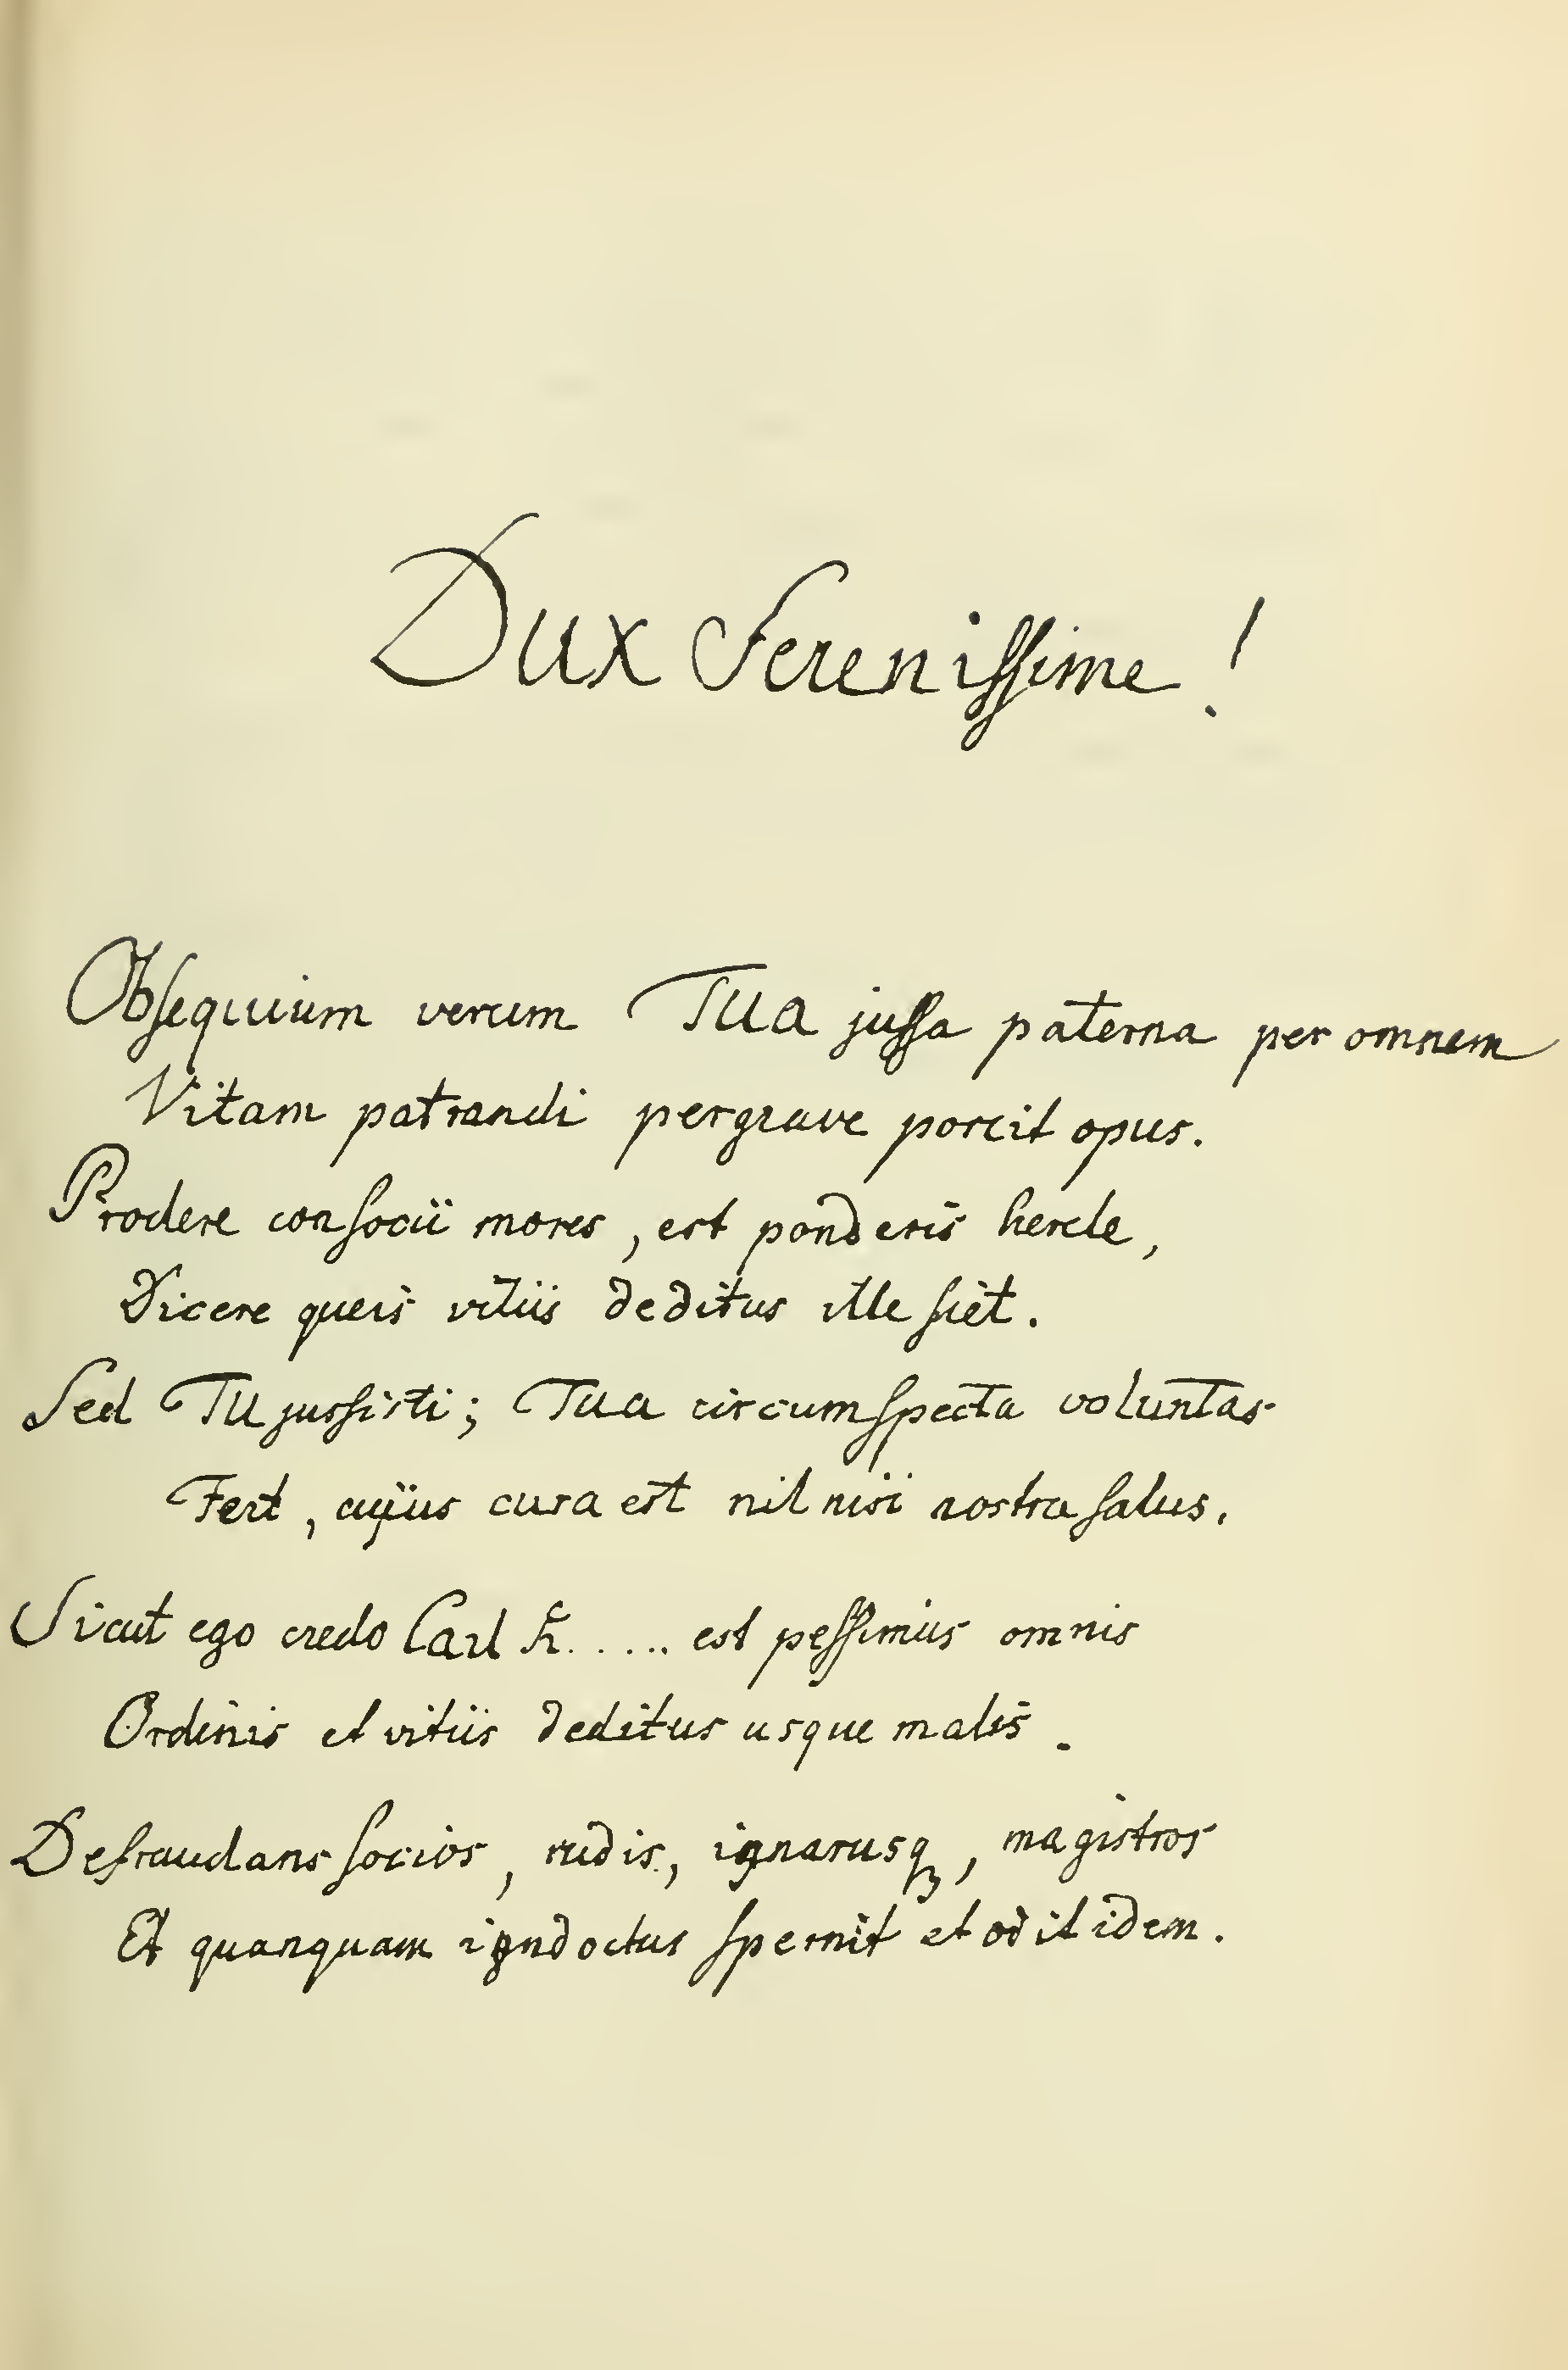 Dux Serenissime!
Obsequium verum Tua jussa paterna per omnem
Vitam patrandi pergrave poscit opus.
Prodere consocii mores, est ponderis hercle,
Dicere queis vitiis deditus ille siet.
Sed Tu jussisti; Tua circumspecta voluntas
Fert, cujus cura est nil nisi nostra salus.
Sicut ego credo Carl K..... est pessimus omnis
Ordinis et vitiis deditus usque malis.
Defraudans socios, rudis, ignarusq, magistros
Et quanquam indoctus spernit et odit idem.